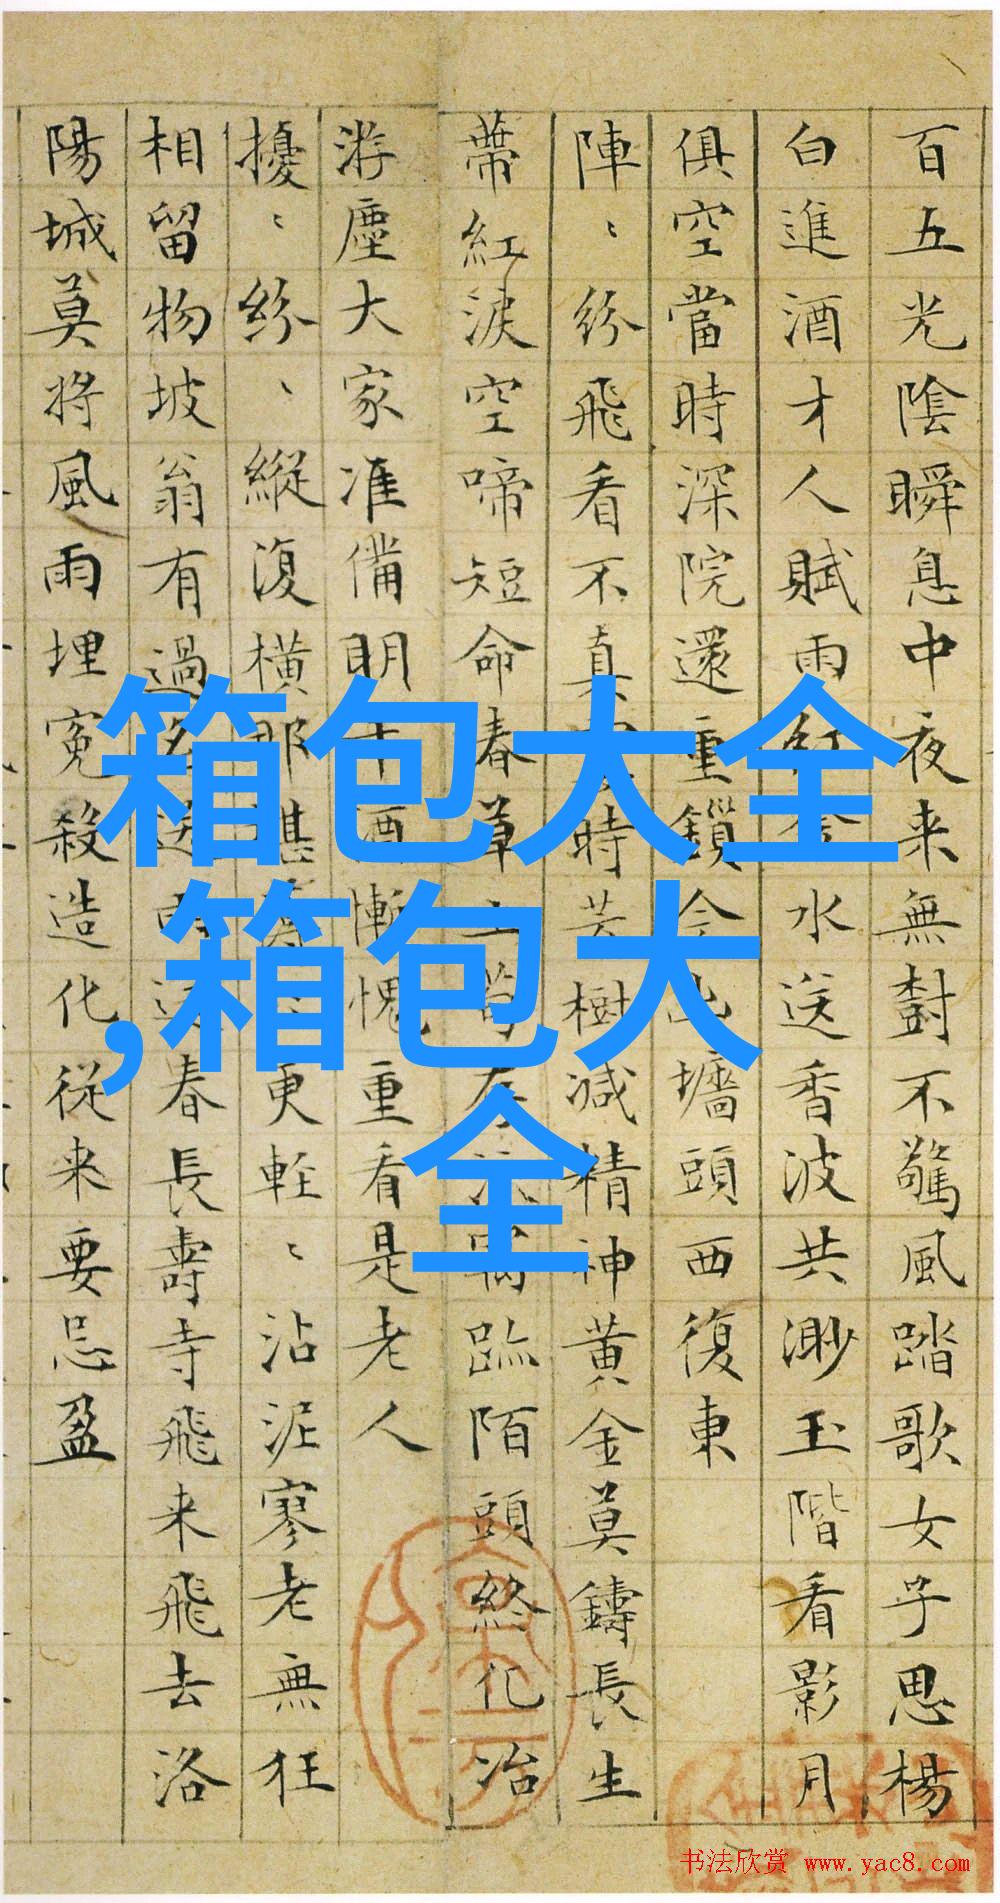 百五光陰瞬息中夜来無對不驚風踏歌女子思楊
白進酒才人賦雨紅水送香波共渺玉階看影月
俱空當時深院還重鎖今墻頭西復東
陣〻紛飛看不真時芳樹減精神黄金莫鑄長生
蒂紅淚空啼短命春草踏陌頭終化冶
游塵大家准備明酒慚愧重看是老人
擾〻紛〻縱復橫那堪更輕〻沾泥寥老無狂
相留物坡翁有過春長壽寺飛来飛去洛
陽城莫將風雨埋冤殺造化從来要忌盈
箱包大全
,箱包大
全
書法欣赏 www.yac8.com